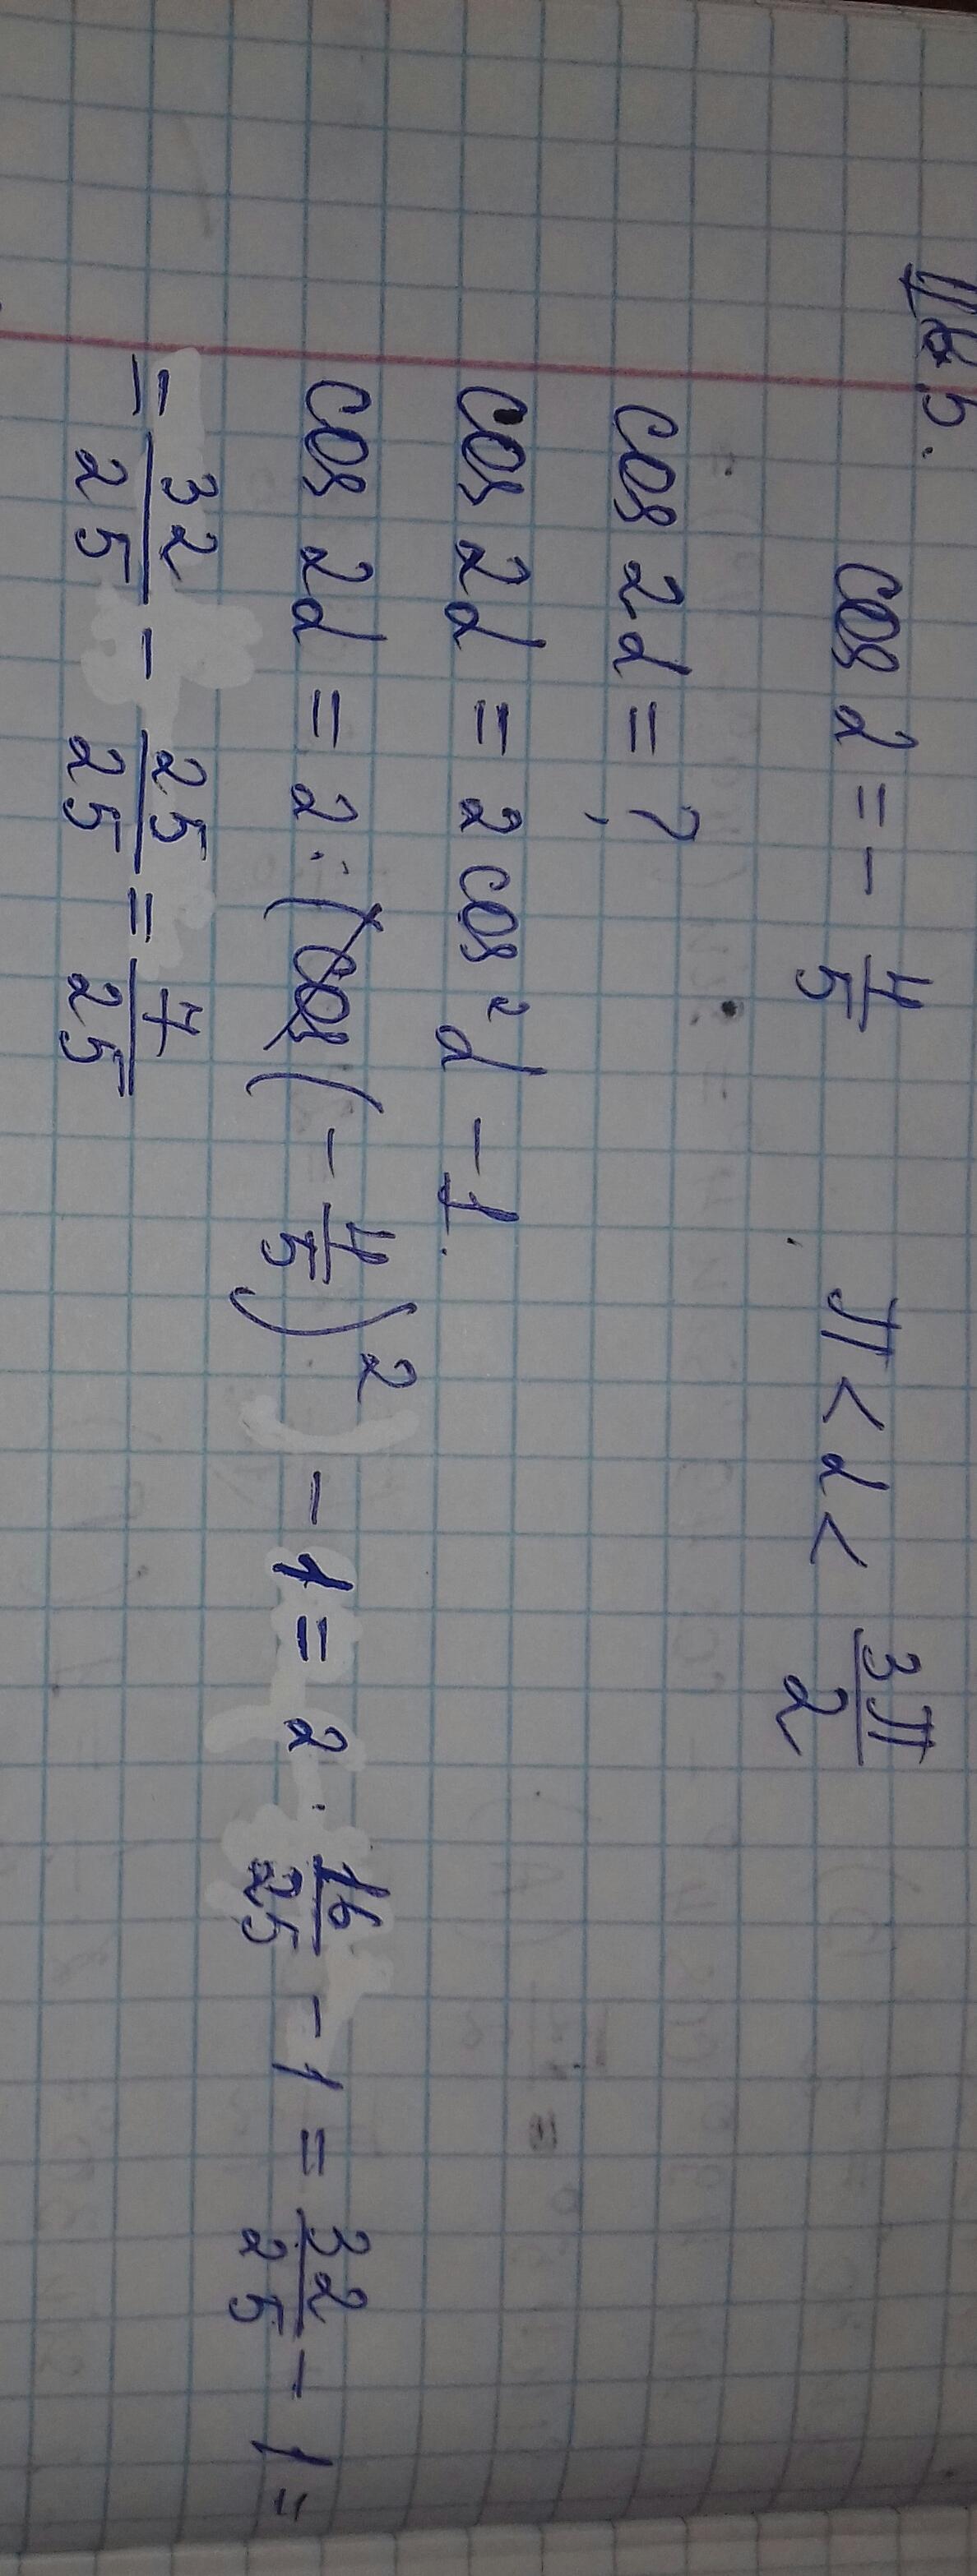 cos α = - 4/5 π < α < 3π/2
cos 2α = ?
cos 2α = 2 cos² α - 1.
cos 2α = 2 · (- 4/5)² - 1 = 2 · 16/25 - 1 = 32/25 - 1 =
= 32/25 - 25/25 = 7/25